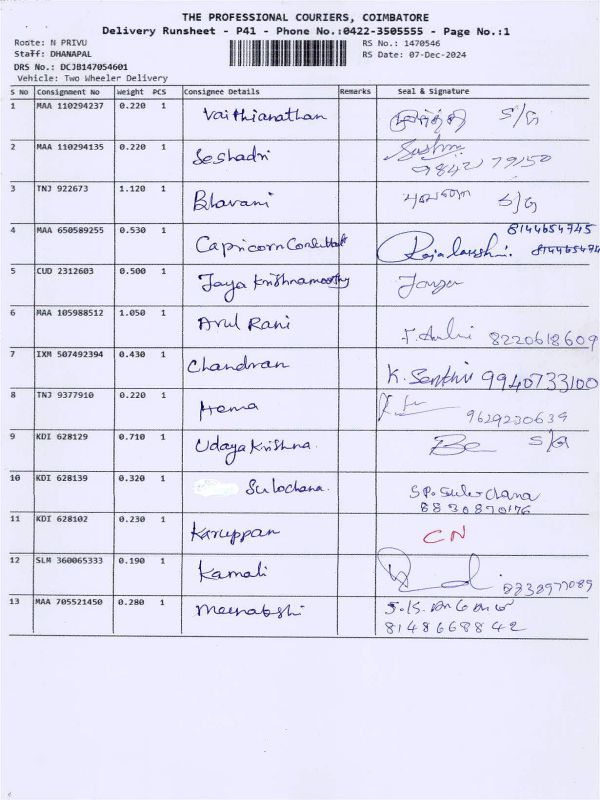 THE PROFESSIONAL COURIERS, COIMBATORE
Delivery Runsheet - P41 - Phone No.:0422-3505555 - Page No.:1
Route: N PRIVU RS No.: 1470546
Staff: DHANAPAL RS Date: 07-Dec-2024
DRS No.: DCJB147054601
Vehicle: Two Wheeler Delivery
S No Consignment No Weight PCS Consignee Details Remarks Seal & Signature
1 MAA 110294237 0.220 1 Vaithianathan S/G
2 MAA 110294135 0.220 1 Seshadri 98427 79150
3 TNJ 922673 1.120 1 Bhavani S/G
4 MAA 650589255 0.530 1 Capricorn Consultant Rajalakshmi. 8144654745
5 CUD 2312603 0.500 1 Jaya Krishnamoorthy Jaya
6 MAA 105988512 1.050 1 Arul Rani 8220618609
7 IXM 507492394 0.430 1 Chandran K. Senthil 9940733100
8 TNJ 9377910 0.220 1 Hema 9629230639
9 KDI 628129 0.710 1 Udaya Krishna. S/G
10 KDI 628139 0.320 1 Sulochana. SP. Sulochana
8830870176
11 KDI 628102 0.230 1 Karuppan CN
12 SLM 360065333 0.190 1 Kamali
13 MAA 705521450 0.280 1 Meenatshi
8148668842